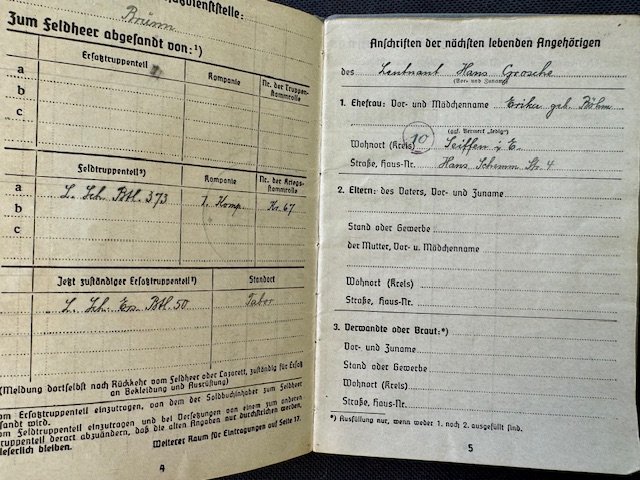 dienststelle:
Brünn
Zum Feldheer abgesandt von:¹)
Ersatztruppenteil Kompanie Nr. der Truppen-
stammrolle
a
b
c
Feldtruppenteil²) Kompanie Nr. der Kriegs-
stammrolle
a L. Sch. Btl. 373 1. Komp. Kr. 67
b
c
Jetzt zuständiger Ersatztruppenteil³) Standort
L. Sch. Ers. Btl. 50 Tabor
(Meldung dortselbst nach Rückkehr vom Feldheer oder Lazarett, zuständig für Ersatz
an Bekleidung und Ausrüstung)
vom Ersatztruppenteil einzutragen, von dem der Soldbuchinhaber zum Feldheer
sandt wird.
vom Feldtruppenteil einzutragen und bei Versetzungen von einem zum anderen
truppenteil derart abzuändern, daß die alten Angaben nur durchstrichen werden,
leserlich bleiben.
Weiterer Raum für Eintragungen auf Seite 17.
4
Anschriften der nächsten lebenden Angehörigen
des Leutnant Hans Grosche
(Vor- und Zuname)
1. Ehefrau: Vor- und Mädchenname Erika geb. Böhm
(ggf. Vermerk „ledig“)
Wohnort (Kreis) 10 Seiffen i. E.
Straße, Haus-Nr. Hans Schemm Str. 4
2. Eltern: des Vaters, Vor- und Zuname
Stand oder Gewerbe
der Mutter, Vor- u. Mädchenname
Wohnort (Kreis)
Straße, Haus-Nr.
3. Verwandte oder Braut:*)
Vor- und Zuname
Stand oder Gewerbe
Wohnort (Kreis)
Straße, Haus-Nr.
*) Ausfüllung nur, wenn weder 1. noch 2. ausgefüllt sind.
5